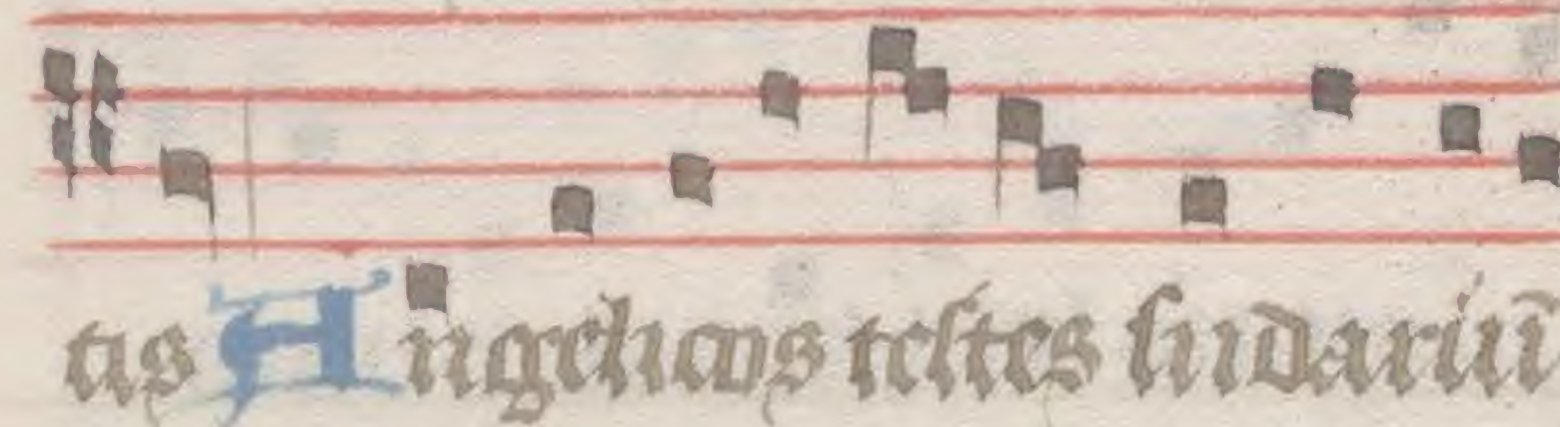 tis Angelicos testes sudariū